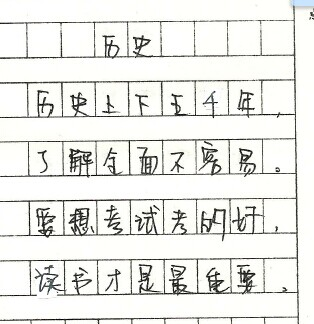 历史
历史上下五千年，
了解全面不容易。
要想考试考的好，
读书才是最重要。